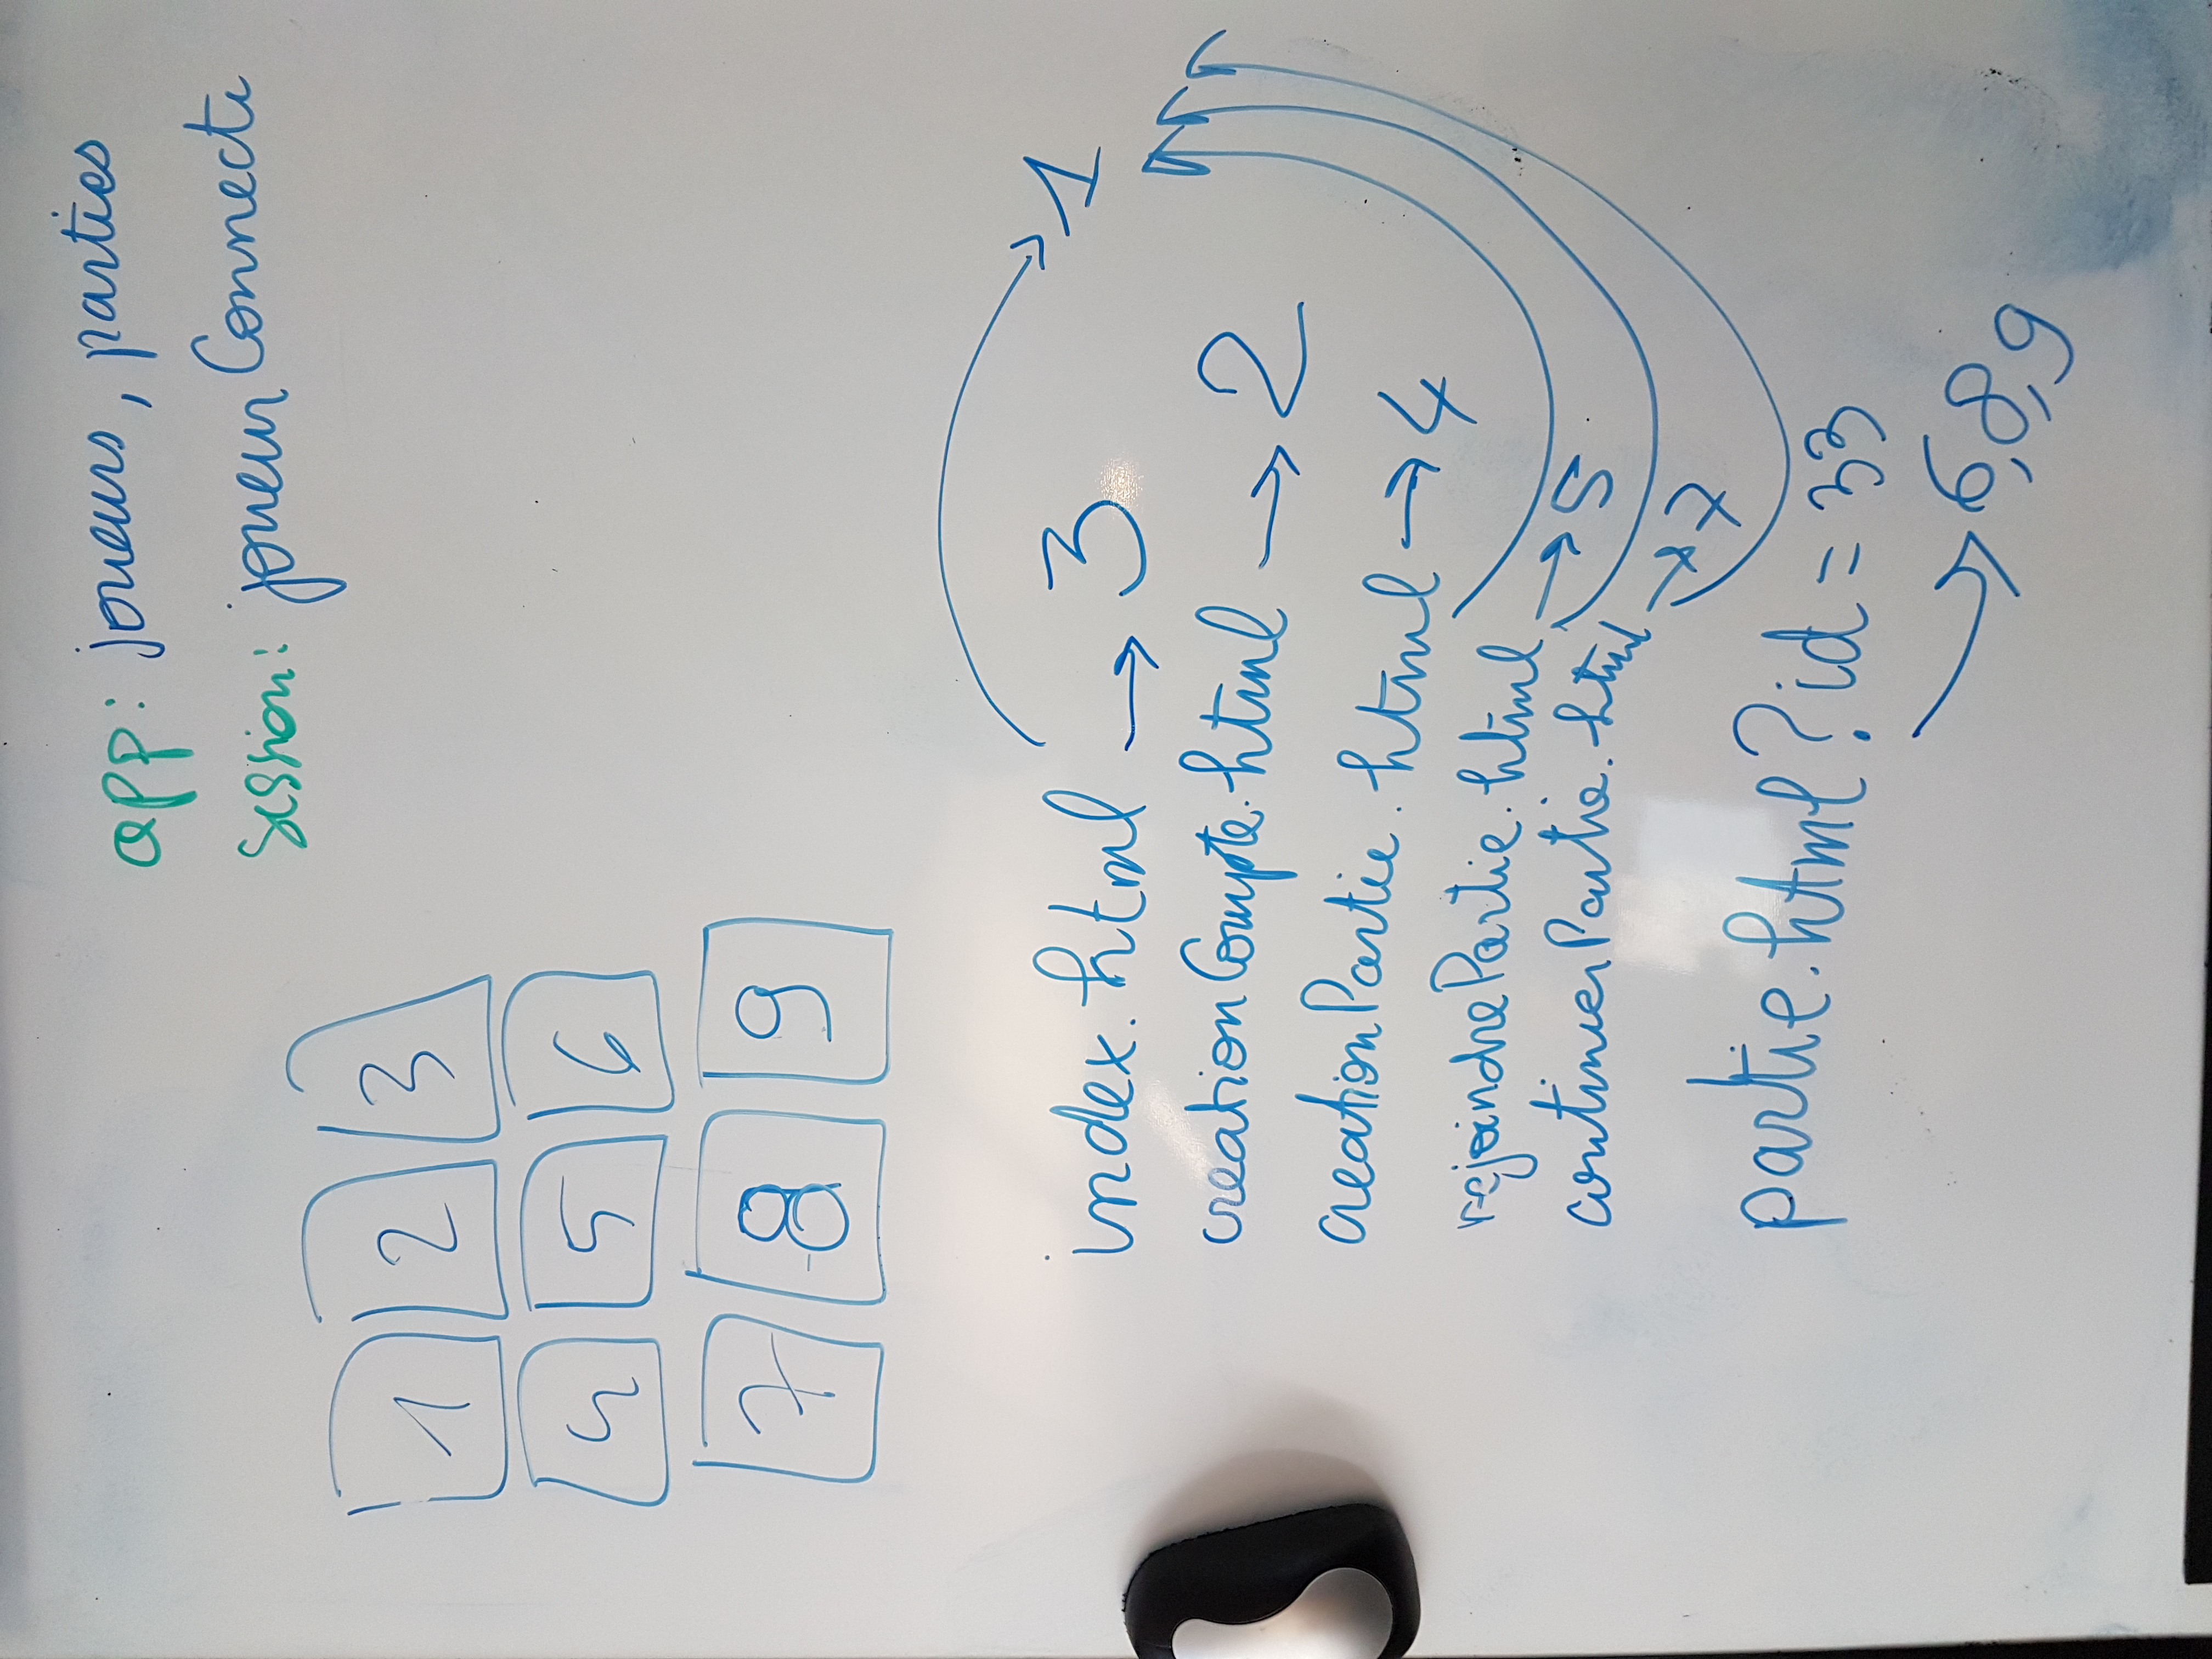 app: joueurs, parties
session: joueurConnecte
1 2 3
4 5 6
7 8 9
index.html → 3 → 1
creationCompte.html → 2
creationPartie.html → 4
rejoindrePartie.html → 5
continuerPartie.html → 7
partie.html?id=33
→ 6,8,9